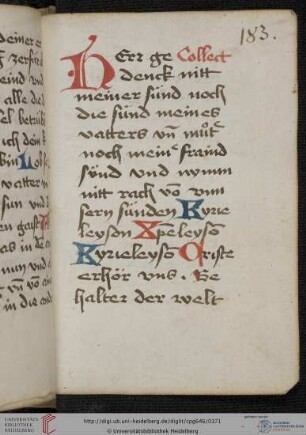 183.
HErr ge Collect
denck nitt
meiner sünd noch
die sünd meines
vatters vn̄ muͦt˜
noch mein˜ fraind
sÿnd vnd nymm
nitt rach von vnn
sern sünden Kyrie
leyson Xpeleyso͂
Kyrieleyso͂ Criste
erhör vns. Be
halter der welt
deiner
zerstör
eind vnd
alle die
sel betrüb
ich dein
bin
vatter
sun vnd
en gaist
as in de
nun vnd
vn̄ vō
in die
http://digi.ub.uni-heidelberg.de/diglit/cpg649/0371
© Universitätsbibliothek Heidelberg
UNIVERSITÄTS-
BIBLIOTHEK
HEIDELBERG